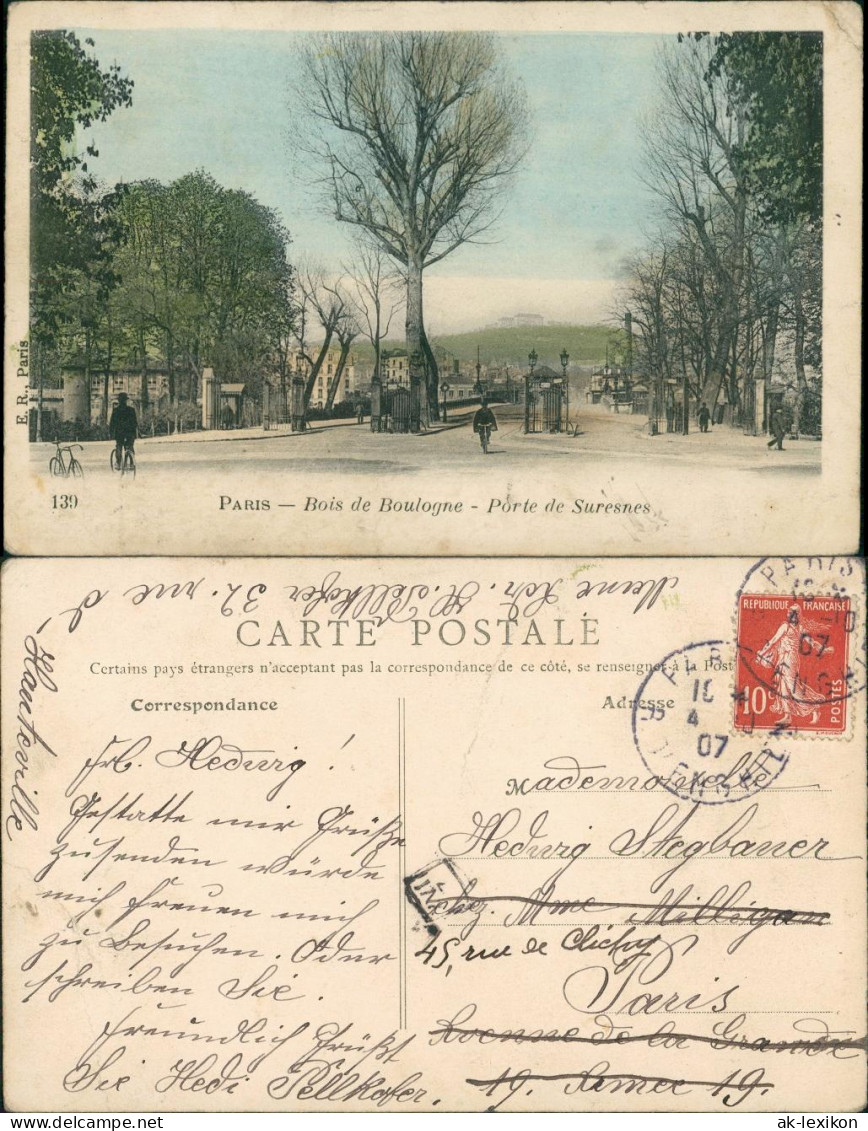 E. R., Paris
139
PARIS — Bois de Boulogne - Porte de Suresnes
Meine Adr. H. Pellkofer 32. rue d'
Hauteville
CARTE POSTALE
Certains pays étrangers n'acceptant pas la correspondance de ce côté, se renseigner à la Post
Correspondance
Adresse
REPUBLIQUE FRANÇAISE
10
POSTES
PARIS
10
4
07
Frl. Hedwig!
Gestatte mir Grüße
zusenden würde
mich freuen mich
zu Besuchen. Oder
schreiben Sie.
Freundlich Grüßt
Sie Hedi Pellkofer.
Mademoiselle
Hedwig Stegbauer
chez. Mme Milligan
45, rue de Clichy
Paris
Avenue de la Grande
19. Armee 19.
ak-lexikon